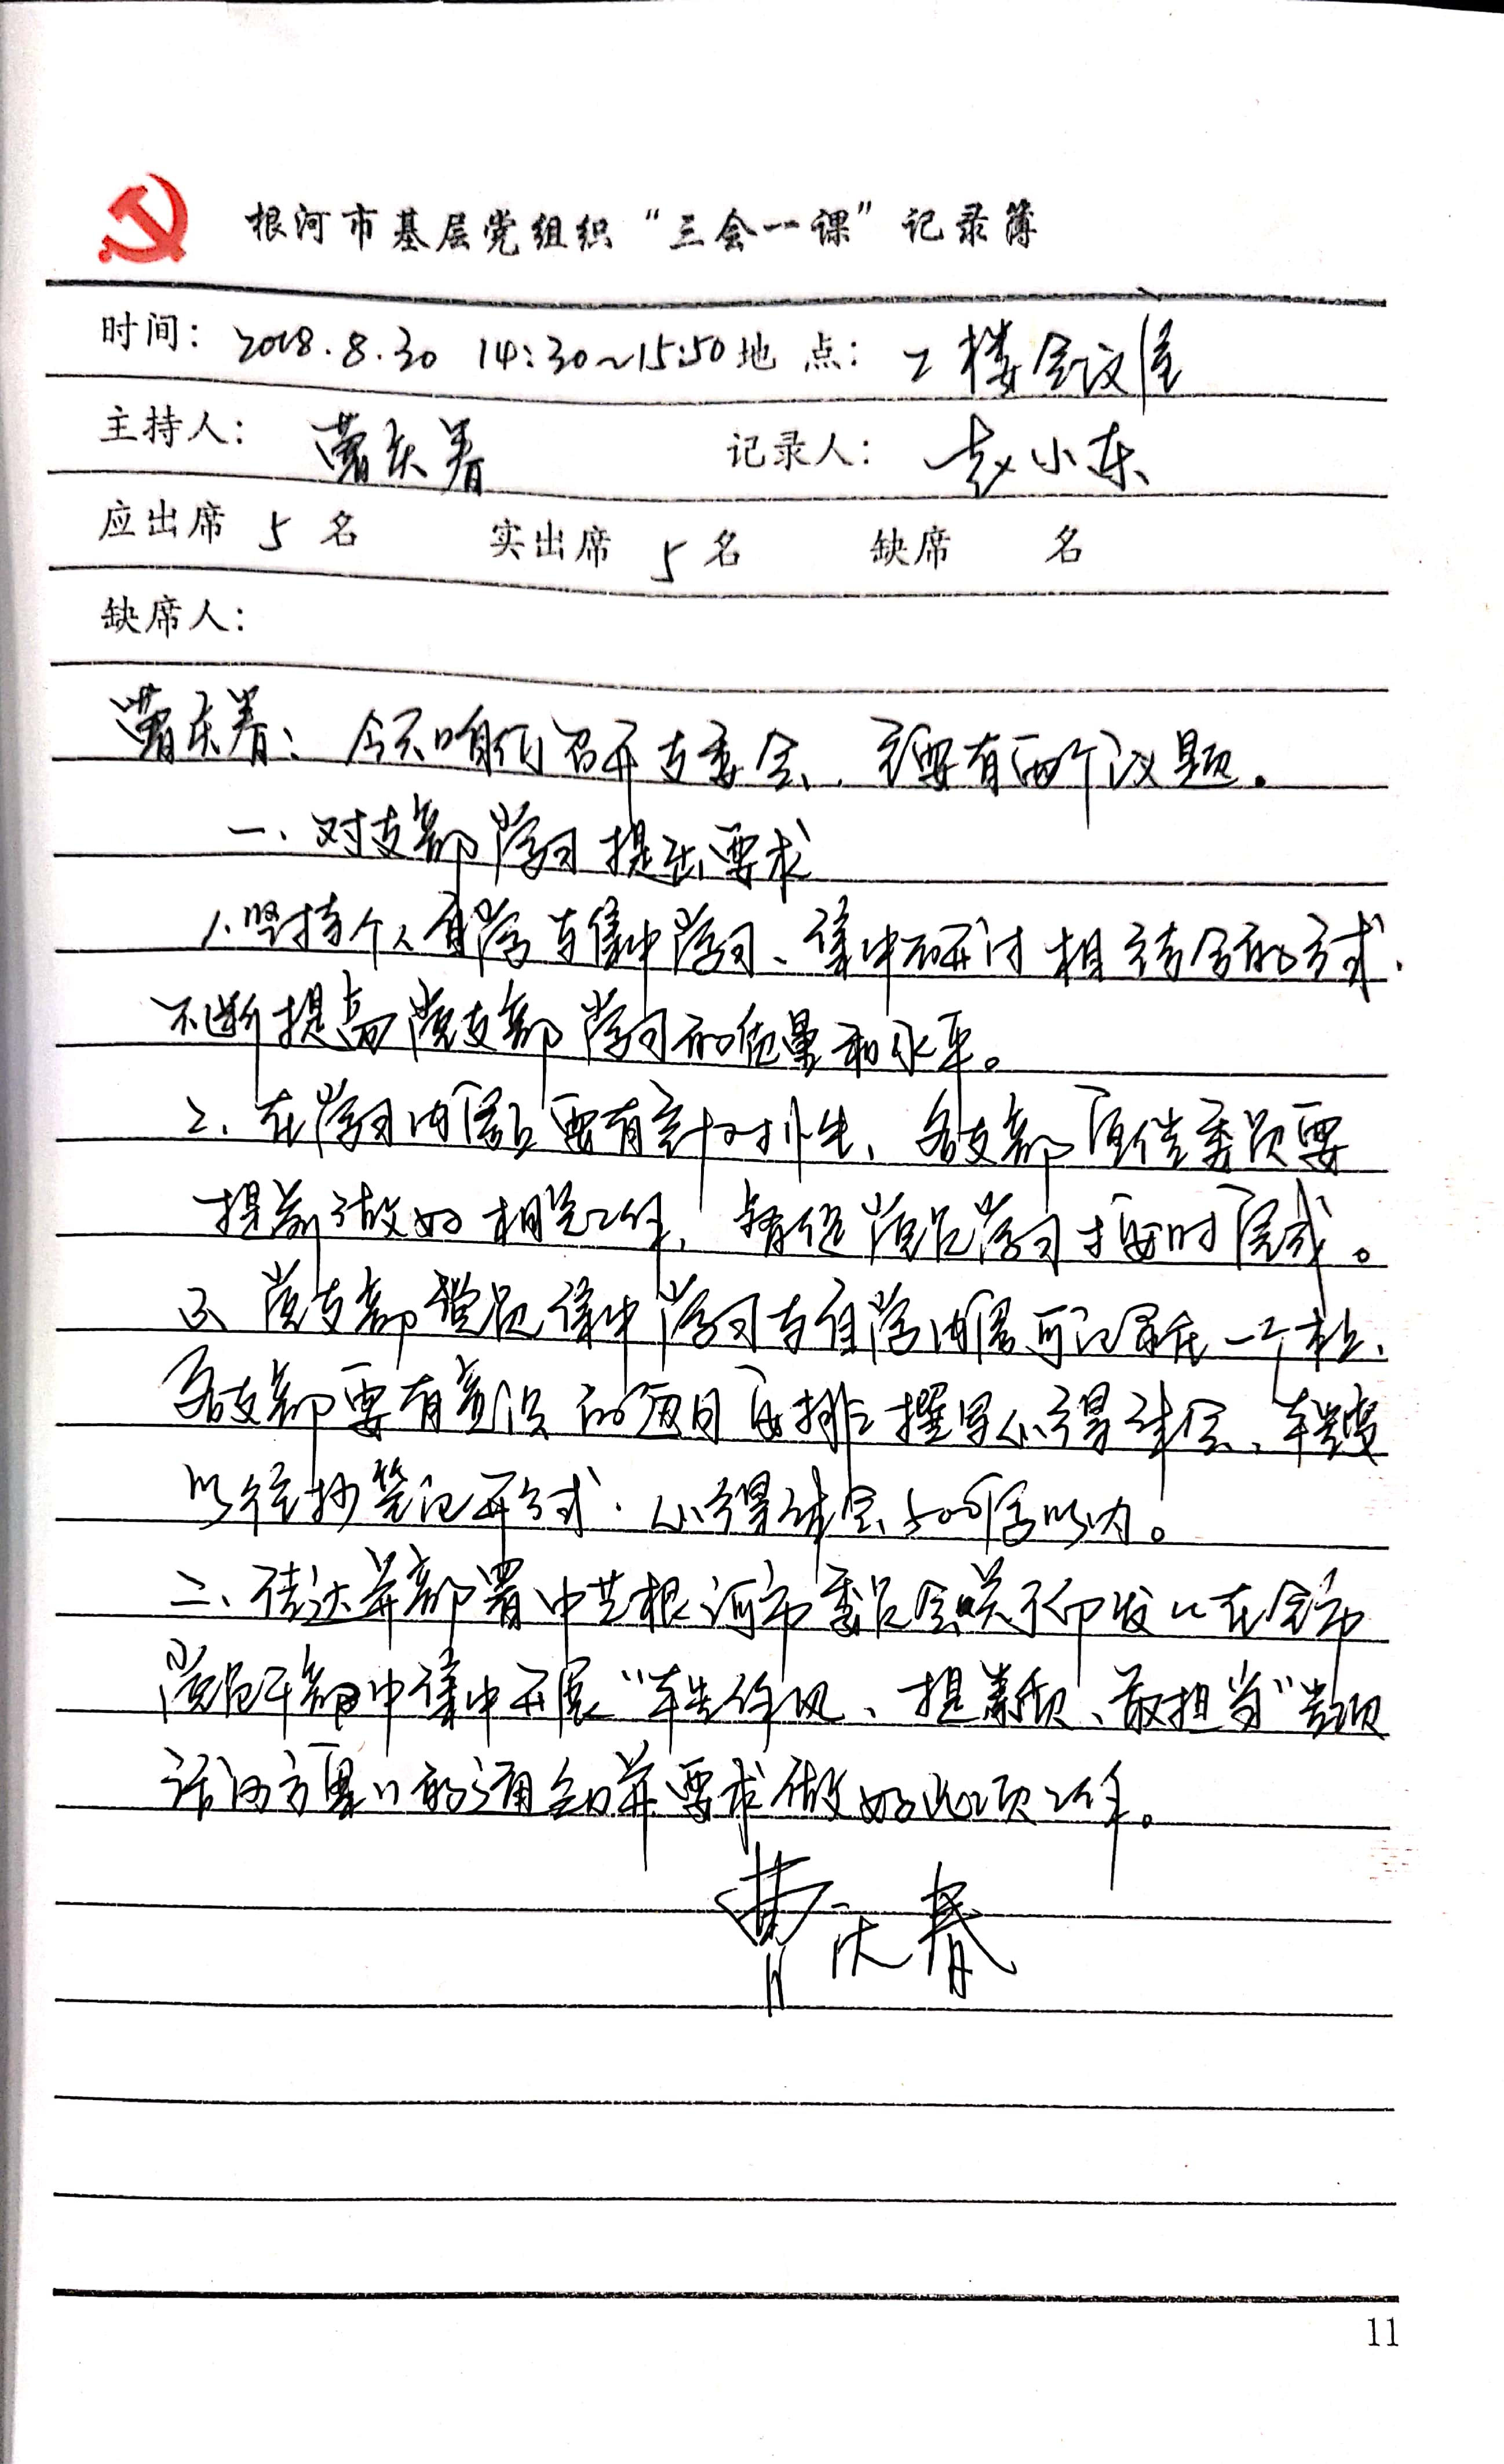 根河市基层党组织“三会一课”记录簿
时间：2018.8.30 14:30~15:50 地点：二楼会议室
主持人：曹庆春 记录人：赵小东
应出席 5 名 实出席 5 名 缺席 名
缺席人：
曹庆春：今天咱们召开支委会，主要有两个议题。
一、对支部学习提出要求
1.坚持个人自学与集中学习、集中研讨相结合的方式，
不断提高党支部学习的质量和水平。
2、在学习内容上要有针对性，各支部宣传委员要
提前做好相关工作，督促党员学习按时完成。
3、党支部党员集中学习与自学内容可记录在一个本上，
各支部要有意识的每月安排撰写心得体会，转变
以往抄笔记形式，心得体会500字以内。
二、传达并部署中共根河市委员会关于印发《在全市
党员干部中集中开展“转作风、提素质、敢担当”专项
活动方案》的通知并要求做好此项工作。
曹庆春
11